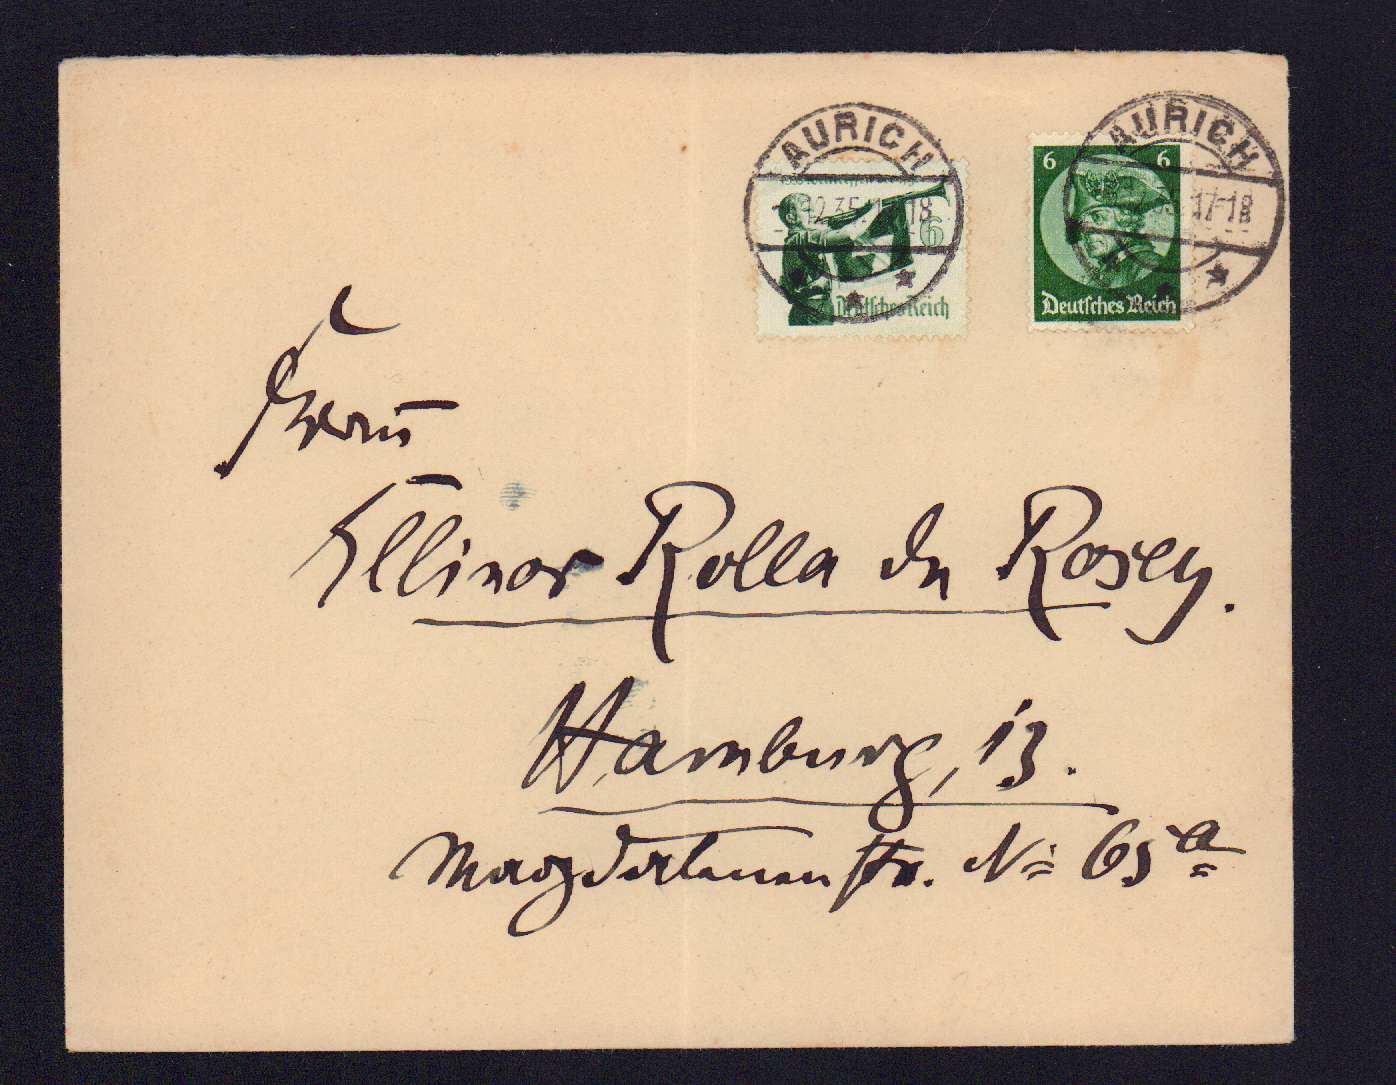 AURICH
12.35. 18
6
Deutsches Reich
AURICH
17-18
6 6
Deutsches Reich
Frau
Ellinor Rolla du Rosey.
Hamburg, 13.
Magdalenenstr. No 65a